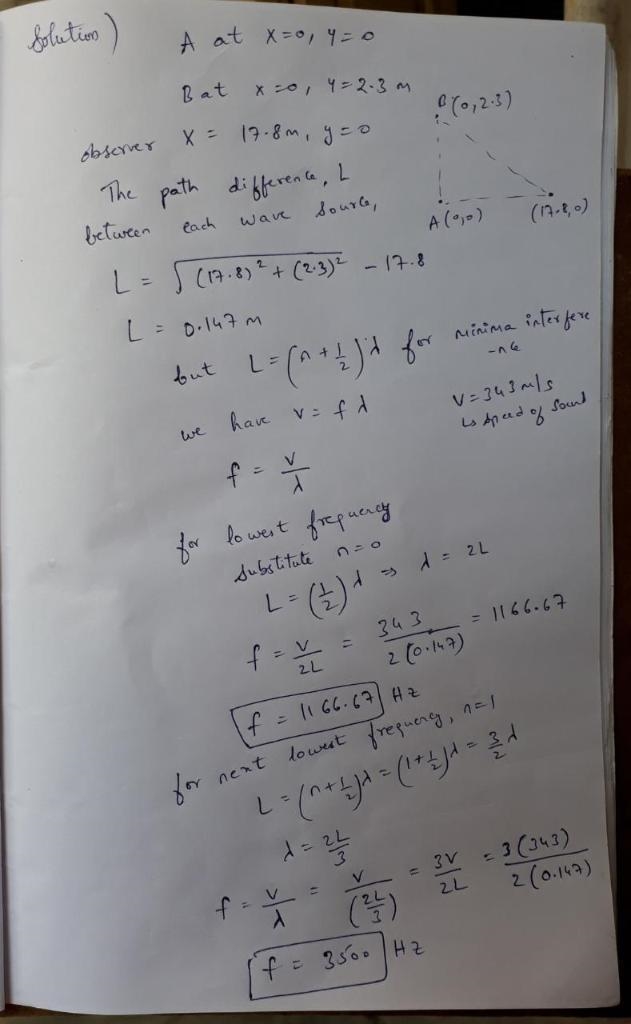 Solution) A at x=0, y=0
B at x=0, y=2.3 m
B(0,2.3)
observer X = 17.8m, y=0
The path difference, L
between each wave source,
A(0,0) (17.8,0)
L = √((17.8)² + (2.3)²) - 17.8
L = 0.147 m
but L = (n + 1/2)λ for minima interfere
-nce
we have v = fλ
V = 343 m/s
↳ speed of sound
f = v/λ
for lowest frequency
substitute n=0
L = (1/2)λ ⇒ λ = 2L
f = v/2L = 343/2(0.147) = 1166.67
f = 1166.67 Hz
for next lowest frequency, n=1
L = (n+1/2)λ = (1+1/2)λ = 3/2 λ
λ = 2L/3
f = v/λ = v/(2L/3) = 3V/2L = 3(343)/2(0.147)
f = 3500 Hz